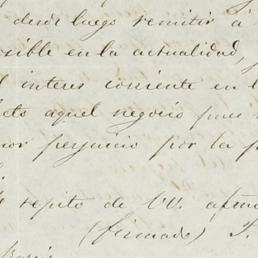 desde luego remitir á
sible en la actualidad,
interes corriente en l
cto aquel negocio pues
or perjuicio por la p
repito de VV. afmo
(firmado) F.